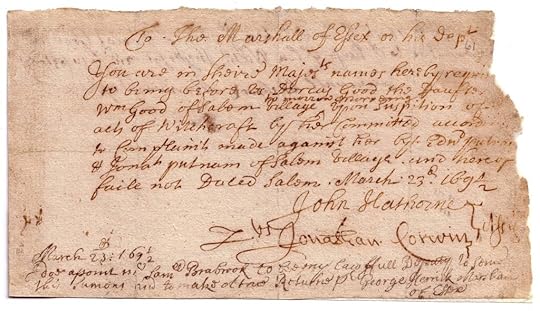 To The Marshall of Essex or his Dep^t
You are in theire Majest^s names hereby requir
to bring before us Dorcas Good the Daufte
W^m Good of Salem Village to morrow morn upon suspition of
acts of Witchcraft by her Committed accord
to Complaints made against her by Edw^d putnam
& Jonat putnam of Salem Village. and hereof
faile not Dated Salem March 23^d. 169½
John Hathorne
Jonathan Corwin
March 23^d. 169½
I doe apoint m^r Sam^ll Brabrook to be my Lawfull Deputy to serve
this sumons and to make a true Returne p^r George Herrick Marshall
of Essex